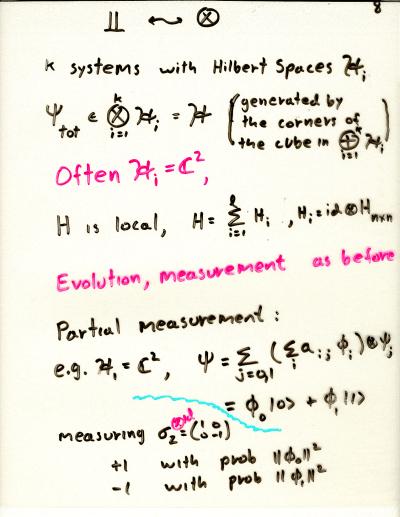 8
⊥⊥ ↔ ⊗
k systems with Hilbert Spaces ℋᵢ
Ψ_tot ∈ ⊗_{i=1}^{k} ℋᵢ = ℋ (generated by the corners of the cube in ⊕_{i=1}^{k} ℋᵢ)
Often ℋᵢ = ℂ²,
H is local, H = Σ_{i=1}^{ℓ} Hᵢ , Hᵢ = id ⊗ H_{n×n}
Evolution, measurement as before
Partial measurement:
e.g. ℋ₁ = ℂ², Ψ = Σ_{j=0,1} (Σ_i a_{ij} ϕᵢ) ⊗ Ψⱼ
= ϕ₀ |0> + ϕ₁ |1>
measuring σ_z = (1 0 0 -1)
+1 with prob ||ϕ₀||²
-1 with prob ||ϕ₁||²